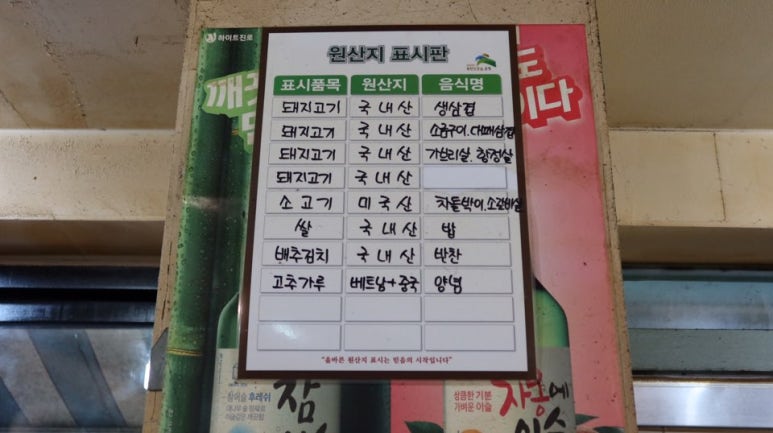 하이트진로
원산지 표시판
표시품목 원산지 음식명
돼지고기 국내산 생삼겹
돼지고기 국내산 소금구이, 대패삼겹
돼지고기 국내산 가브리살, 항정살
돼지고기 국내산
소고기 미국산 차돌박이, 소갈비살
쌀 국내산 밥
배추김치 국내산 반찬
고추가루 베트남+중국 양념
"올바른 원산지 표시는 믿음의 시작입니다"
깨
도
이다
참이슬 후레쉬
대나무숯 정제로
참
상큼한 기분
가벼운 이슬
자몽에
이슬